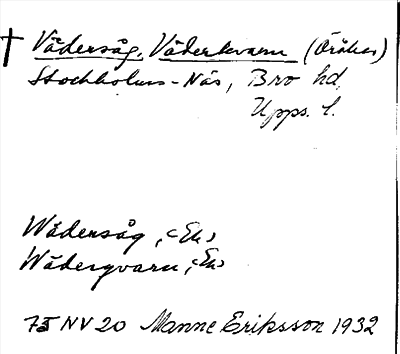 † Vädersåg, Väderkvarn (Öråker)
Stockholms-Näs, Bro hd,
Upps. l.
Wädersåg, <Ek>
Wäderqvarn, <Ek>
75 NV 20 Manne Eriksson 1932